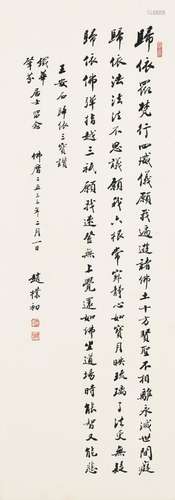 歸依眾梵行四威儀願我遍遊諸佛土十方賢聖不相離永滅世間癡
歸依法法法不思議願我六根常寂靜心如寶月映琉璃了法更無疑
歸依佛彈指越三祇願我速登無上覺還如佛坐道場時能智又能悲
王安石歸依三寶讚
居士留念
佛曆二五三三年二月一日
趙樸初